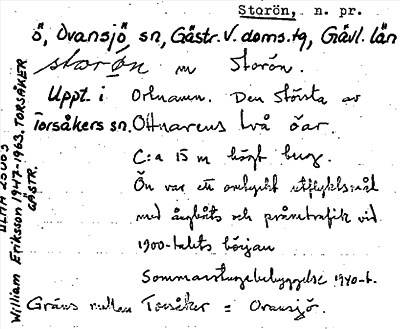 Storön, n. pr.
ö, Ovansjö sn, Gästr. V. doms. tg, Gävl. län
storön m Storön.
Uppt. i Ortnamn. Den största av
Torsåkers sn. Ottnarens två öar.
C:a 15 m högt berg.
Ön var ett omtyckt utflyktsmål
med ångbåts och pråmtrafik vid
1900-talets början
Sommarstugebebyggelse 1940-t.
Gräns mellan Torsåker = Ovansjö.
ULMA 25063
William Eriksson 1947-1963, TORSÅKER
GÄSTR.